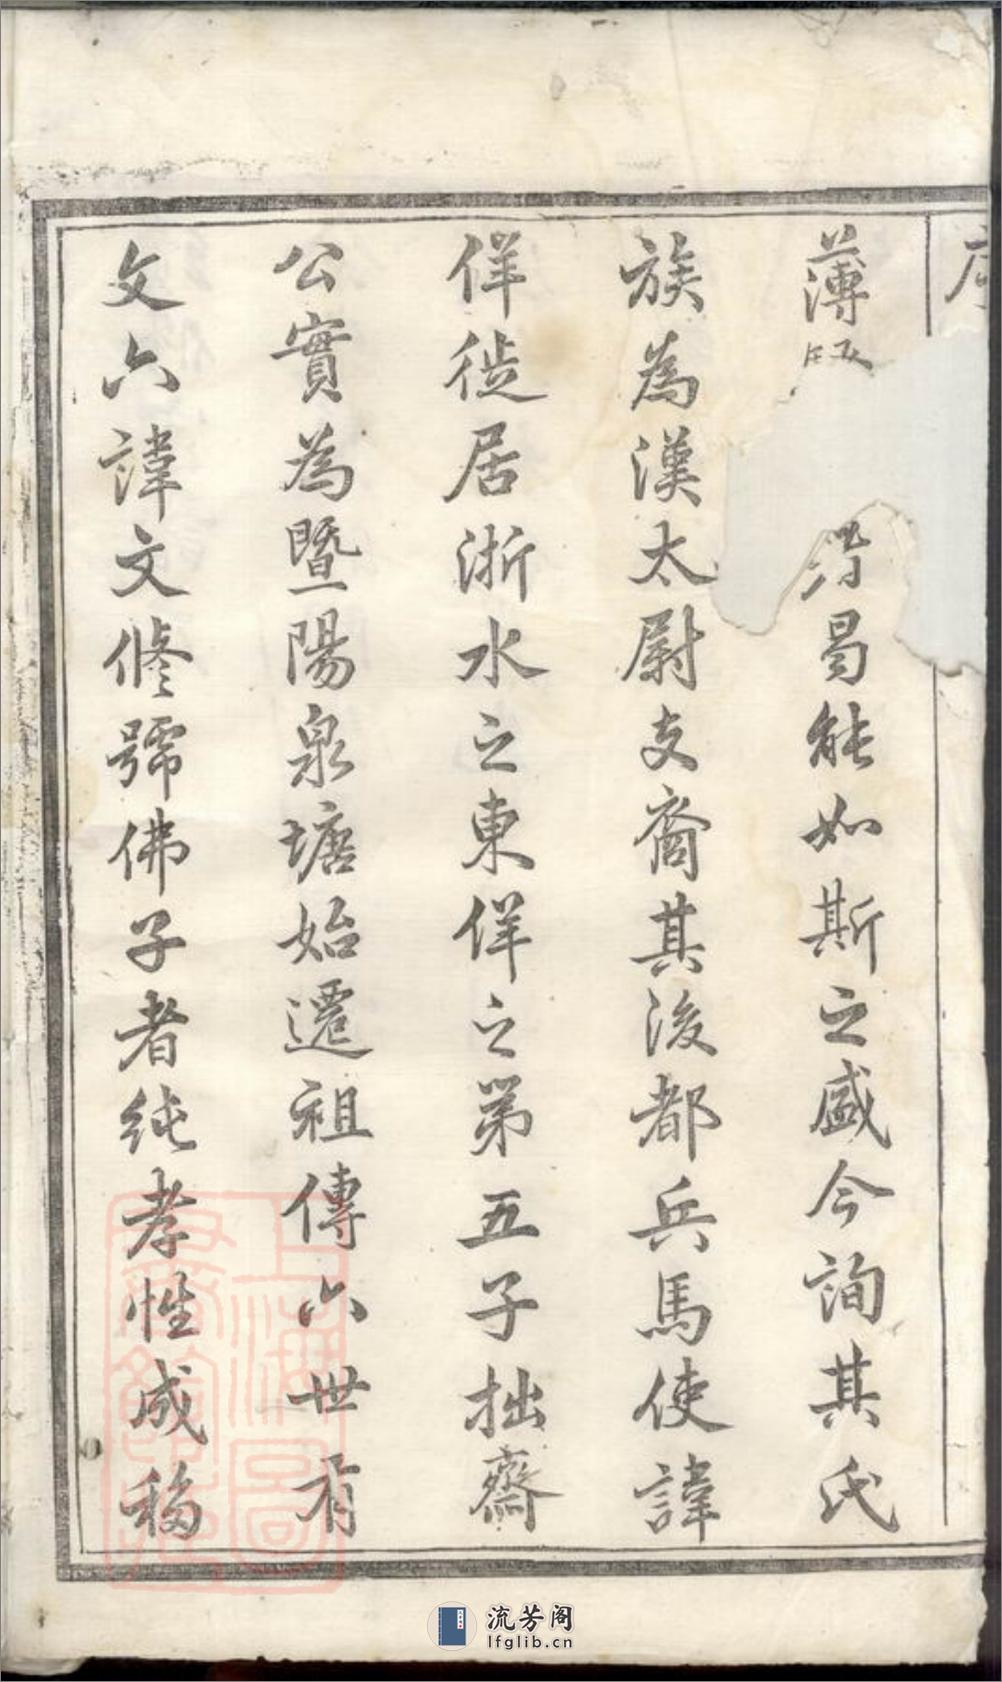 序
薄
曷能如斯之盛今詢其氏
族為漢太尉支裔其後都兵馬使諱
佯徙居浙水之東佯之第五子拙齋
公實為暨陽泉塘始遷祖傳六世有
文六諱文修號佛子者純孝性成移
上海圖書館藏
流芳阁
lfglib.cn